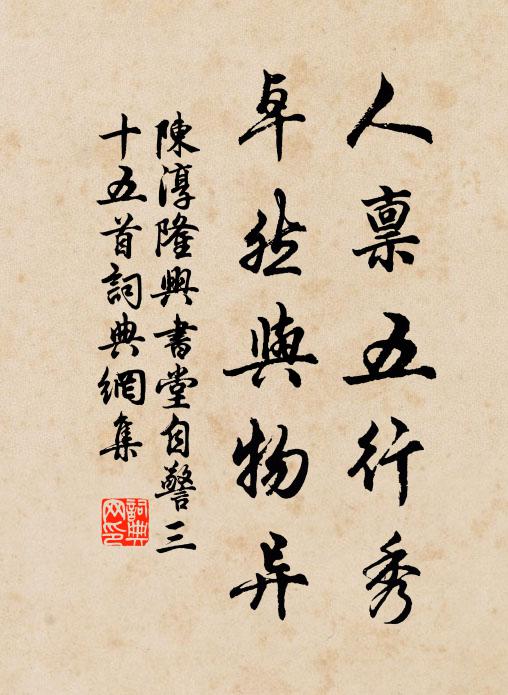 人禀五行秀
卓然與物异
陳淳隆興書堂自警三
十五首詞典網集
詞典网印